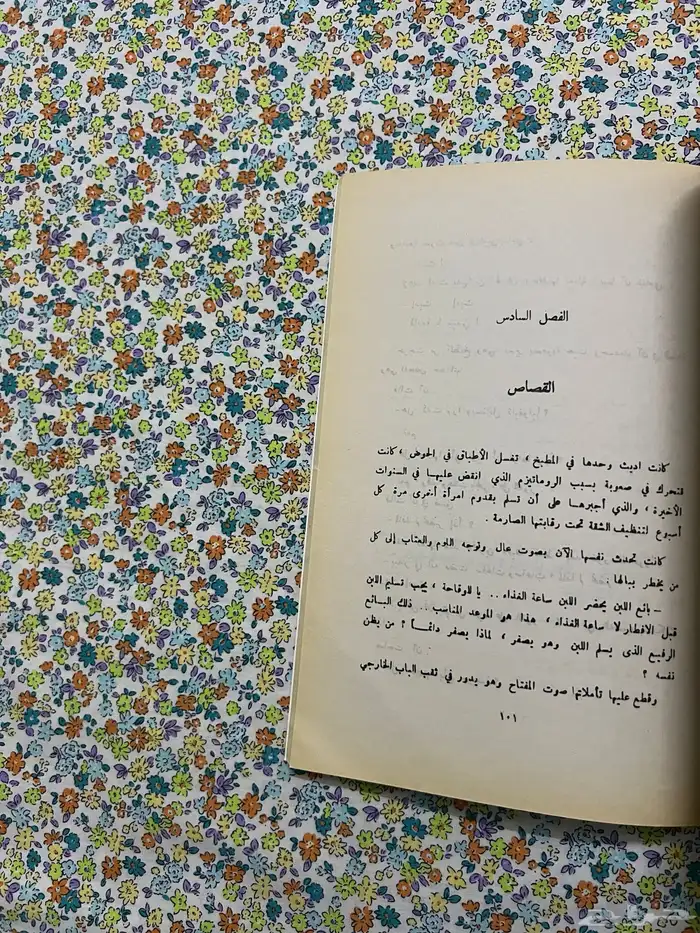 الفصل السادس
القصاص
كانت اديث وحدها في المطبخ ، تغسل الأطباق في الحوض ، كانت
تتحرك في صعوبة بسبب الروماتيزم الذي انقض عليها في السنوات
الأخيرة ، والذي أجبرها على أن تسلم بقدوم امرأة أخرى مرة كل
أسبوع لتنظيف الشقة تحت رقابتها الصارمة .
كانت تحدث نفسها الآن بصوت عال وتوجه اللوم والعتاب إلى كل
من يخطر ببالها :
– بائع اللبن يحضر اللبن ساعة الغذاء .. يا للوقاحة ، يجب تسليم اللبن
قبل الافطار لا ساعة الغذاء ، هذا هو الموعد المناسب .. ذلك البائع
الرفيع الذى يسلم اللبن وهو يصفر ، لماذا يصفر دائماً ؟ من يظن
نفسه ؟
وقطع عليها تأملاتها صوت المفتاح وهو يدور في ثقب الباب الخارجي
١٠١